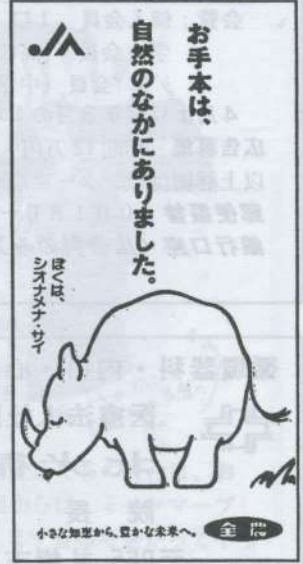 お手本は、
自然のなかにありました。
ぼくは、
シオナメナ・サイ
小さな知恵から、豊かな未来へ。
全農
JA